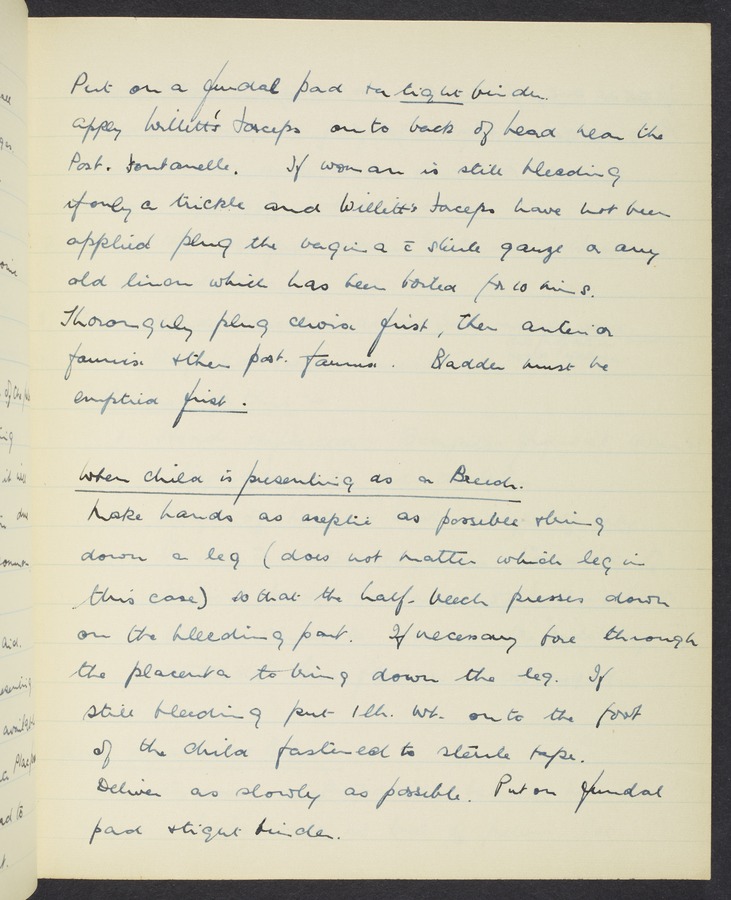 Put on a fundal pad + a tight binder.
Apply Willett's forceps on to back of head near the
Post. Fontanelle. If woman is still bleeding
if only a trickle and Willett's forceps have not been
applied plug the vagina c̄ sterile gauze or any
old linen which has been boiled for 10 mins.
Thoroughly plug cervix first, then anterior
fornix + then post. fornix. Bladder must be
emptied first.
When child is presenting as a Breech.
Make hands as aseptic as possible + bring
down a leg (does not matter which leg in
this case) so that the half-breech presses down
on the bleeding part. If necessary bore through
the placenta to bring down the leg. If
still bleeding put 1 lb. wt. on to the foot
of the child fastened to sterile tape.
Deliver as slowly as possible. Put on fundal
pad + tight binder.